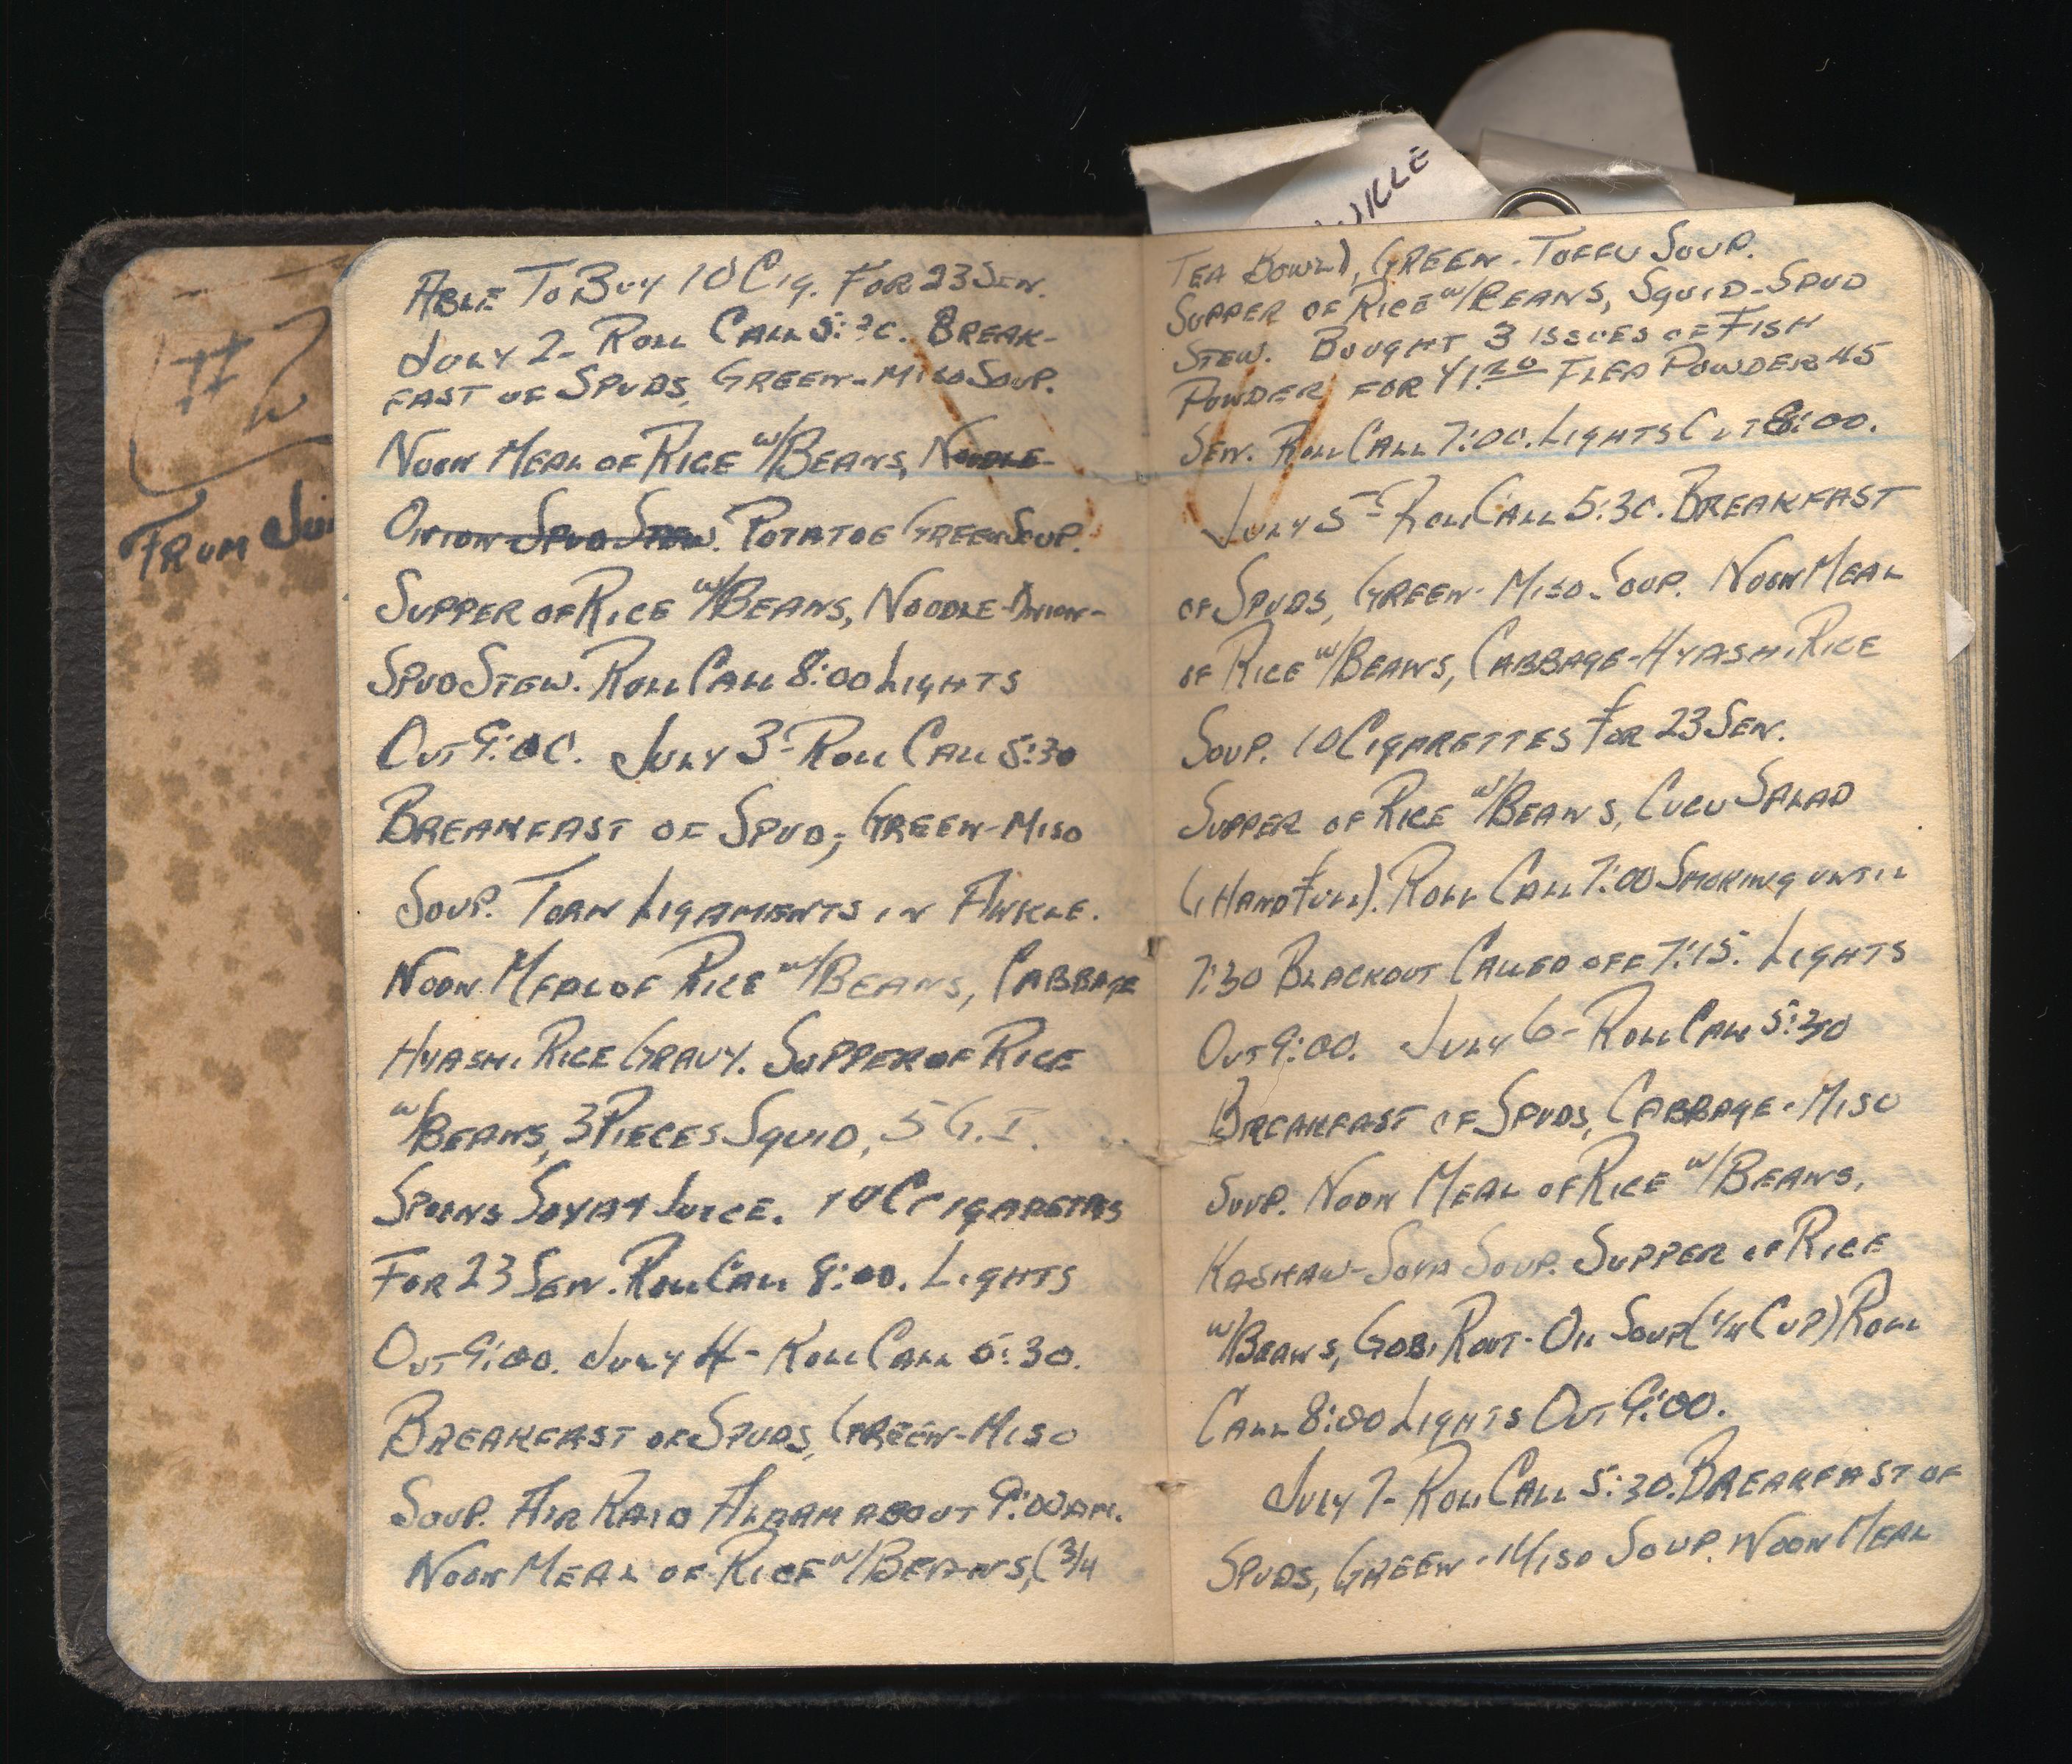 #2
FROM
VILLE
ABLE TO BUY 10 CIG. FOR 23 SEN.
JULY 2- ROLL CALL 5:30. BREAK-
FAST OF SPUDS, GREEN-MISO SOUP.
NOON MEAL OF RICE W/BEANS, NOODLE-
ONION-SPUD STEW. POTATOE GREEN SOUP.
SUPPER OF RICE W/BEANS, NOODLE-ONION-
SPUD STEW. ROLL CALL 8:00 LIGHTS
OUT 9:00. JULY 3-ROLL CALL 5:30
BREAKFAST OF SPUD, GREEN-MISO
SOUP. TORN LIGAMENTS IN ANKLE.
NOON MEAL OF RICE W/BEANS, CABBAGE
HYASHI RICE GRAVY. SUPPER OF RICE
W/BEANS, 3 PIECES SQUID, 5 G.I.
SPOONS SOYA JUICE. 10 CIGARETTES
FOR 23 SEN. ROLL CALL 8:00. LIGHTS
OUT 9:00. JULY 4- ROLL CALL 5:30.
BREAKFAST OF SPUDS, GREEN-MISO
SOUP. AIR RAID ALARM ABOUT 9:00 AM.
NOON MEAL OF RICE W/BEANS, (3/4
TEA BOWL), GREEN-TOFFU SOUP.
SUPPER OF RICE W/BEANS, SQUID-SPUD
STEW. BOUGHT 3 ISSUES OF FISH
POWDER FOR Y1.20 FLEA POWDER 45
SEN. ROLL CALL 7:00. LIGHTS OUT 8:00.
JULY 5- ROLL CALL 5:30. BREAKFAST
OF SPUDS, GREEN-MISO-SOUP. NOON MEAL
OF RICE W/BEANS, CABBAGE-HYASHI RICE
SOUP. 10 CIGARETTES FOR 23 SEN.
SUPPER OF RICE W/BEANS, CUCU SALAD
(1 HANDFULL). ROLL CALL 7:00 SMOKING UNTIL
7:30 BLACKOUT CALLED OFF 7:15. LIGHTS
OUT 9:00. JULY 6- ROLL CALL 5:30
BREAKFAST OF SPUDS, CABBAGE-MISO
SOUP. NOON MEAL OF RICE W/BEANS,
KASHAW-SOYA SOUP. SUPPER OF RICE
W/BEANS, GOBI ROOT-OIL SOUP (1/4 CUP) ROLL
CALL 8:00 LIGHTS OUT 9:00.
JULY 7- ROLL CALL 5:30. BREAKFAST OF
SPUDS, GREEN-MISO SOUP. NOON MEAL